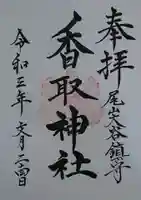 奉拝
谷鎮守
香取神社
令和三年文月二四日